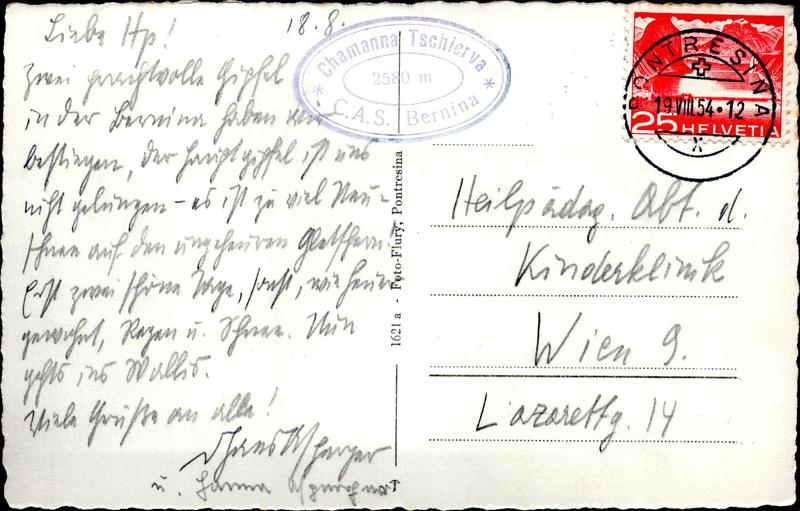 18.8.
Liebe Hp!
Zwei prachtvolle Gipfel
in der Bernina haben wir
bestiegen, der Hauptgipfel ist uns
nicht gelungen – es ist zu viel Neu-
schnee auf den ungeheuren Gletschern.
Erst zwei schöne Tage, sonst, wie heuer
gewohnt, Regen u. Schnee. Nun
gehts ins Wallis.
Viele Grüße an alle!
Hans Asperger
u. Hanna Asperger
Chamanna Tschierva
2580 m
* C.A.S. Bernina *
1621 a - Foto-Flury, Pontresina
PONTRESINA
19.VIII.54·12
X
25 HELVETIA
Heilpädag. Abt. d.
Kinderklinik
Wien 9.
Lazarettg. 14